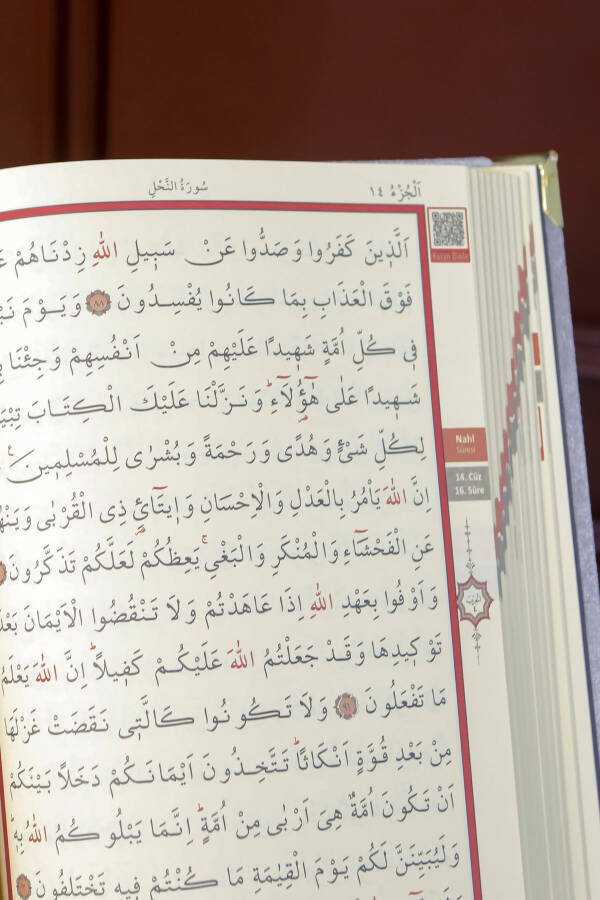 سُورَةُ النَّحْلِ
اَلْجُزْءُ ١٤
اَلَّذ۪ينَ كَفَرُوا وَصَدُّوا عَنْ سَب۪يلِ اللّٰهِ زِدْنَاهُمْ
فَوْقَ الْعَذَابِ بِمَا كَانُوا يُفْسِدُونَ ٨٨ وَيَوْمَ
ف۪ي كُلِّ اُمَّةٍ شَه۪يدًا عَلَيْهِمْ مِنْ اَنْفُسِهِمْ وَجِئْنَا
شَه۪يدًا عَلٰى هٰٓؤُ۬لَٓاءِۜ وَنَزَّلْنَا عَلَيْكَ الْكِتَابَ
لِكُلِّ شَيْءٍ وَهُدًى وَرَحْمَةً وَبُشْرٰى لِلْمُسْلِم۪ينَ ع
اِنَّ اللّٰهَ يَأْمُرُ بِالْعَدْلِ وَالْاِحْسَانِ وَا۪يتَٓائِ ذِي الْقُرْبٰى
عَنِ الْفَحْشَٓاءِ وَالْمُنْكَرِ وَالْبَغْيِۚ يَعِظُكُمْ لَعَلَّكُمْ تَذَكَّرُونَ
وَاَوْفُوا بِعَهْدِ اللّٰهِ اِذَا عَاهَدْتُمْ وَلَا تَنْقُضُوا الْاَيْمَانَ
تَوْك۪يدِهَا وَقَدْ جَعَلْتُمُ اللّٰهَ عَلَيْكُمْ كَف۪يلًاۜ اِنَّ اللّٰهَ يَعْلَمُ
مَا تَفْعَلُونَ ٩١ وَلَا تَكُونُوا كَالَّت۪ي نَقَضَتْ غَزْلَهَا
مِنْ بَعْدِ قُوَّةٍ اَنْكَاثًاۜ تَتَّخِذُونَ اَيْمَانَكُمْ دَخَلًا بَيْنَكُمْ
اَنْ تَكُونَ اُمَّةٌ هِيَ اَرْبٰى مِنْ اُمَّةٍۜ اِنَّمَا يَبْلُوكُمُ اللّٰهُ بِه۪ۜ
وَلَيُبَيِّنَنَّ لَكُمْ يَوْمَ الْقِيٰمَةِ مَا كُنْتُمْ ف۪يهِ تَخْتَلِفُونَ
Kuran Dinle
Nahl
Sûresi
14. Cüz
16. Sûre